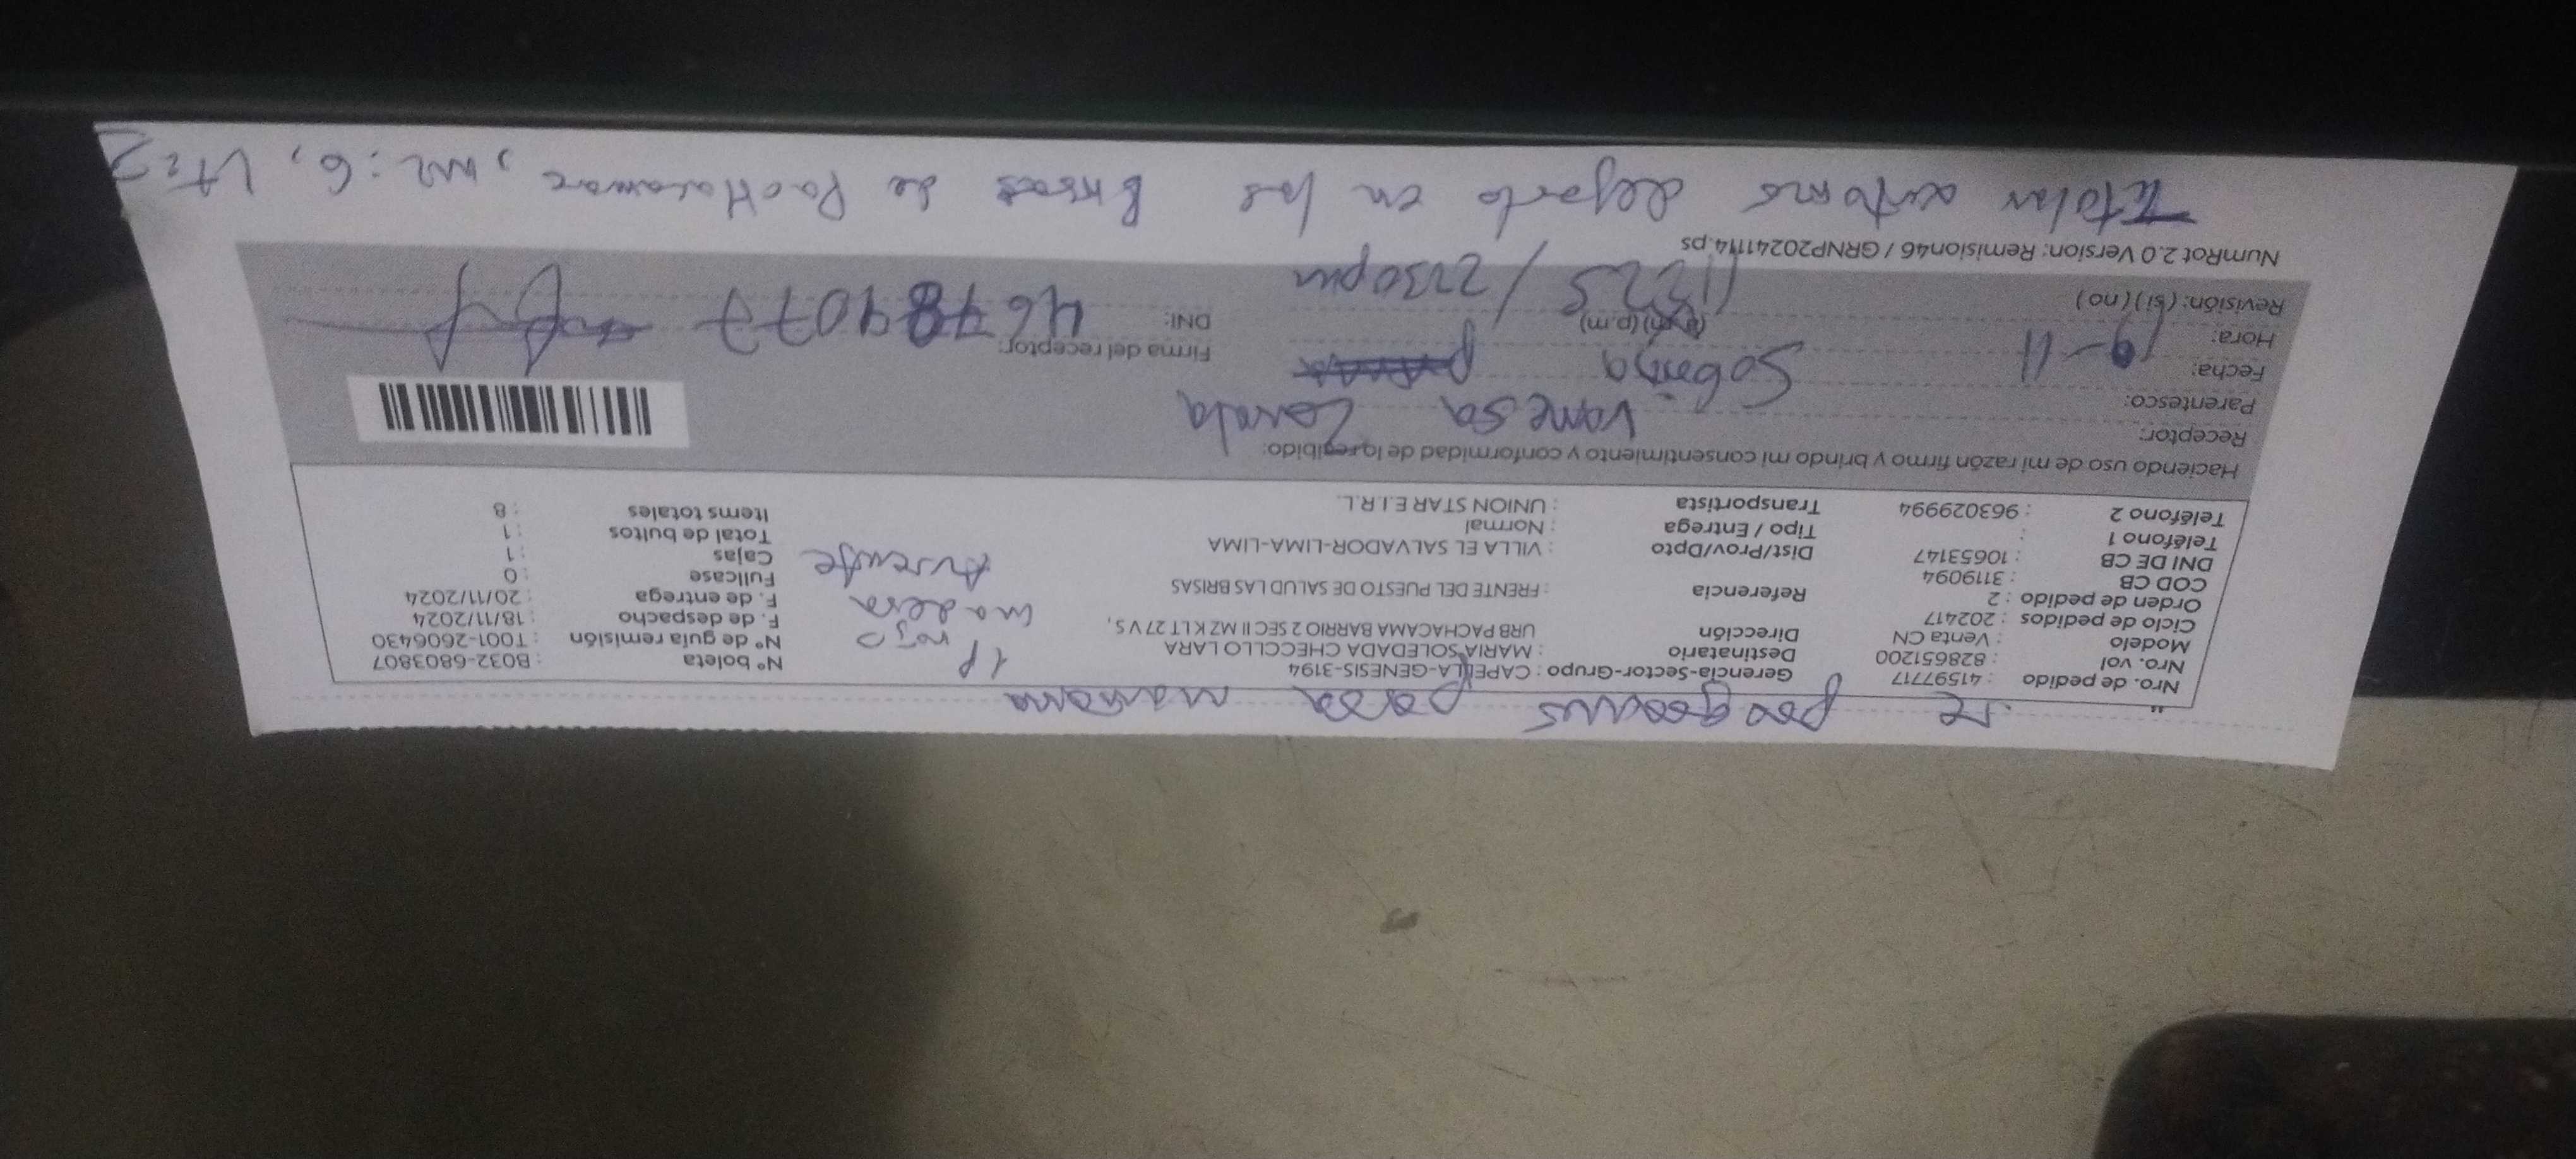 se programa para mañana
Nro. de pedido : 41597717 Gerencia-Sector-Grupo : CAPELLA-GENESIS-3194 Nº boleta : B032-6803807
Nro. vol : 828651200 Destinatario : MARIA SOLEDADA CHECCLLO LARA Nº de guía remisión : T001-2606430
Modelo : Venta CN Dirección URB PACHACAMA BARRIO 2 SEC II MZ K LT 27 V S, F. de despacho : 18/11/2024
Ciclo de pedidos : 202417 Referencia : FRENTE DEL PUESTO DE SALUD LAS BRISAS F. de entrega : 20/11/2024
Orden de pedido : 2 Dist/Prov/Dpto : VILLA EL SALVADOR-LIMA-LIMA Fullcase : 0
COD CB : 3119094 Tipo / Entrega : Normal Cajas : 1
DNI DE CB : 10653147 Transportista : UNION STAR E.I.R.L. Total de bultos : 1
Teléfono 1 : Items totales : 8
Teléfono 2 : 963029994
1P rojo
madera
Ausente
Haciendo uso de mi razón firmo y brindo mi consentimiento y conformidad de lo recibido:
Receptor: Vanesa Zavala
Parentesco: Sobrina
Fecha: 19-11 Firma del receptor:
Hora: (a.m) (p.m) DNI:
Revisión: (si) (no) / 2:30pm
NumRot 2.0 Version: Remision46 / GRNP20241114.ps
Titular autoriza dejarlo en las Brisas de Pachacamac, mz: 6, Lt: 2